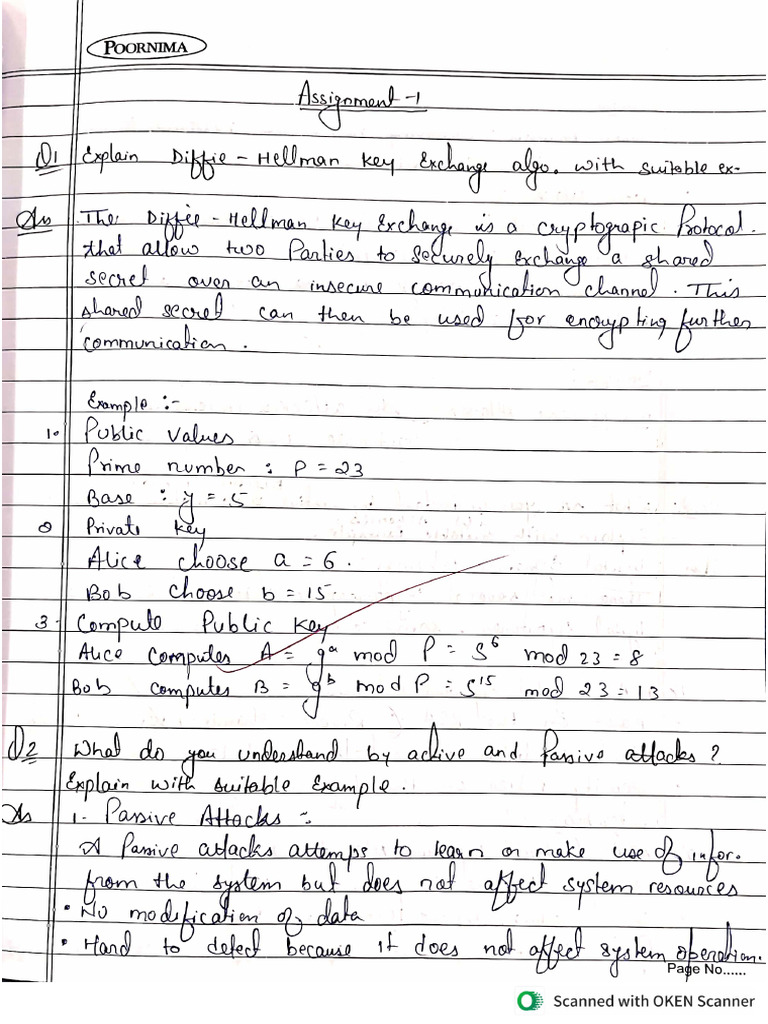 POORNIMA
Assignment -1
Q1 Explain Diffie - Hellman Key Exchange algo. with suitable ex-
Ans The Diffie - Hellman Key Exchange is a cryptograpic Protocol.
that allow two Parties to securely exchange a shared
secret over an insecure communication channel. This
shared secret can then be used for encrypting further
communication.
Example :-
1. Public values
Prime number : P = 23
Base : g = 5
Private Key
Alice choose a = 6.
Bob choose b = 15.
3. Compute Public Key
Alice Computes A = g^a mod P = 5^6 mod 23 = 8
Bob computes B = g^b mod P = 5^15 mod 23 = 13
Q2 What do you understand by active and Passive attacks ?
Explain with suitable Example.
Ans 1. Passive Attacks :-
A Passive attacks attemps to learn or make use of infor.
from the system but does not affect system resources
• No modification of data
• Hard to detect because it does not affect system operation.
Page No......
Scanned with OKEN Scanner